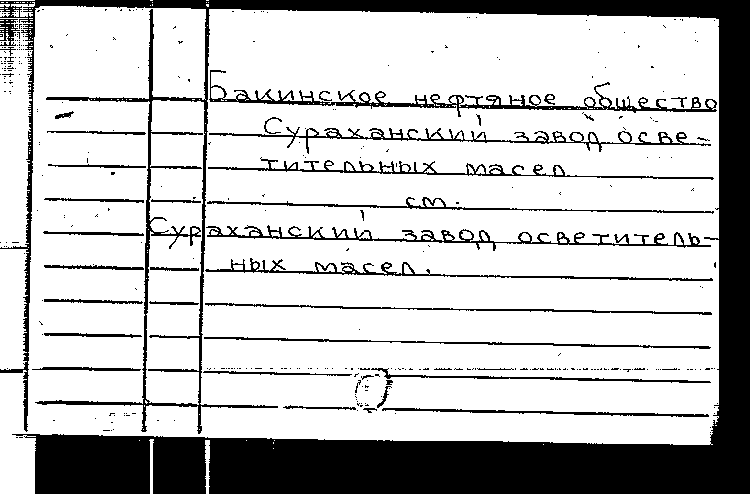 Бакинское нефтяное общество
Сураханский завод осве-
тительных масел
см.
Сураханский завод осветитель-
ных масел.